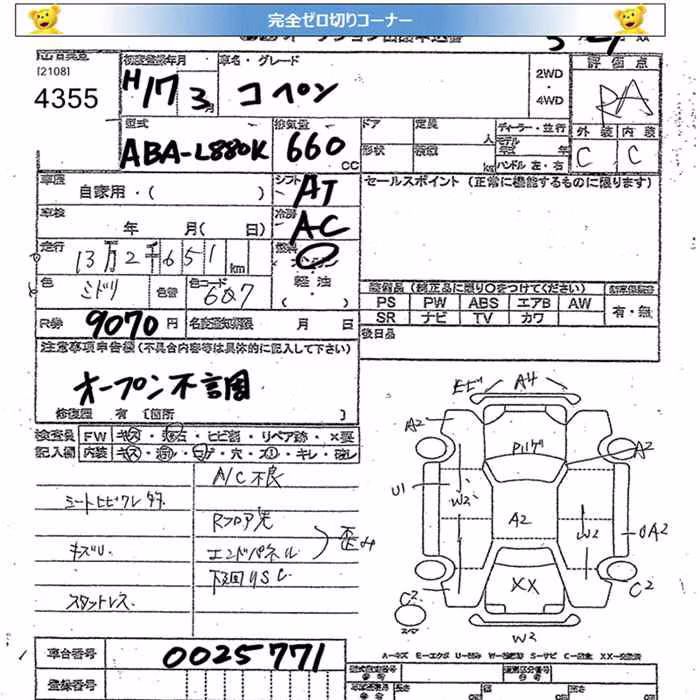 完全ゼロ切りコーナー
[2108]
4355
初度登録年月
H17 3月
車名・グレード
コペン
2WD
・
4WD
評価点
RA
外装 内装
C C
型式
ABA-L880K
排気量
660 CC
ドア
定員 人
ディーラー・並行
形状
積載 kg
モデル 年式 年
ハンドル 左・右
車歴
自家用・( )
シフト
AT
セールスポイント (正常に機能するものに限ります)
車検
年 月( 日)
冷房
AC
走行
13万2千651 km
燃料
軽油
( )
色
ミドリ
色替
色コード
607
装備品 (純正品に限り○をつけてください)
PS PW ABS エアB AW
SR ナビ TV カワ
有・無
R券
9070 円
名変期限 月 日
後日品
注意事項申告欄 (不具合内容等は具体的に記入して下さい)
オープン不調
修復歴 有 [箇所 ]
検査員 FW キズ・飛石・ヒビ割・リペア跡・×要
記入欄 内装 キズ・汚・コゲ・穴・スリ・キレ・破レ
A/C 不良
シートヒビワレ
Rフロア先
キズU.
エンドパネル
歪み
下回りSC
スタットレス
ヒビ A4
A2
Pハゲ
A2
U1
W2
A2
W2
UA2
XX
C2
C2
スペア
W2
A=キズ E=エクボ U=凹み W=補修跡 S=サビ C=腐食 XX=交換済
車台番号
0025771
登録番号
型式指定番号
類別区分番号
長さ
cm